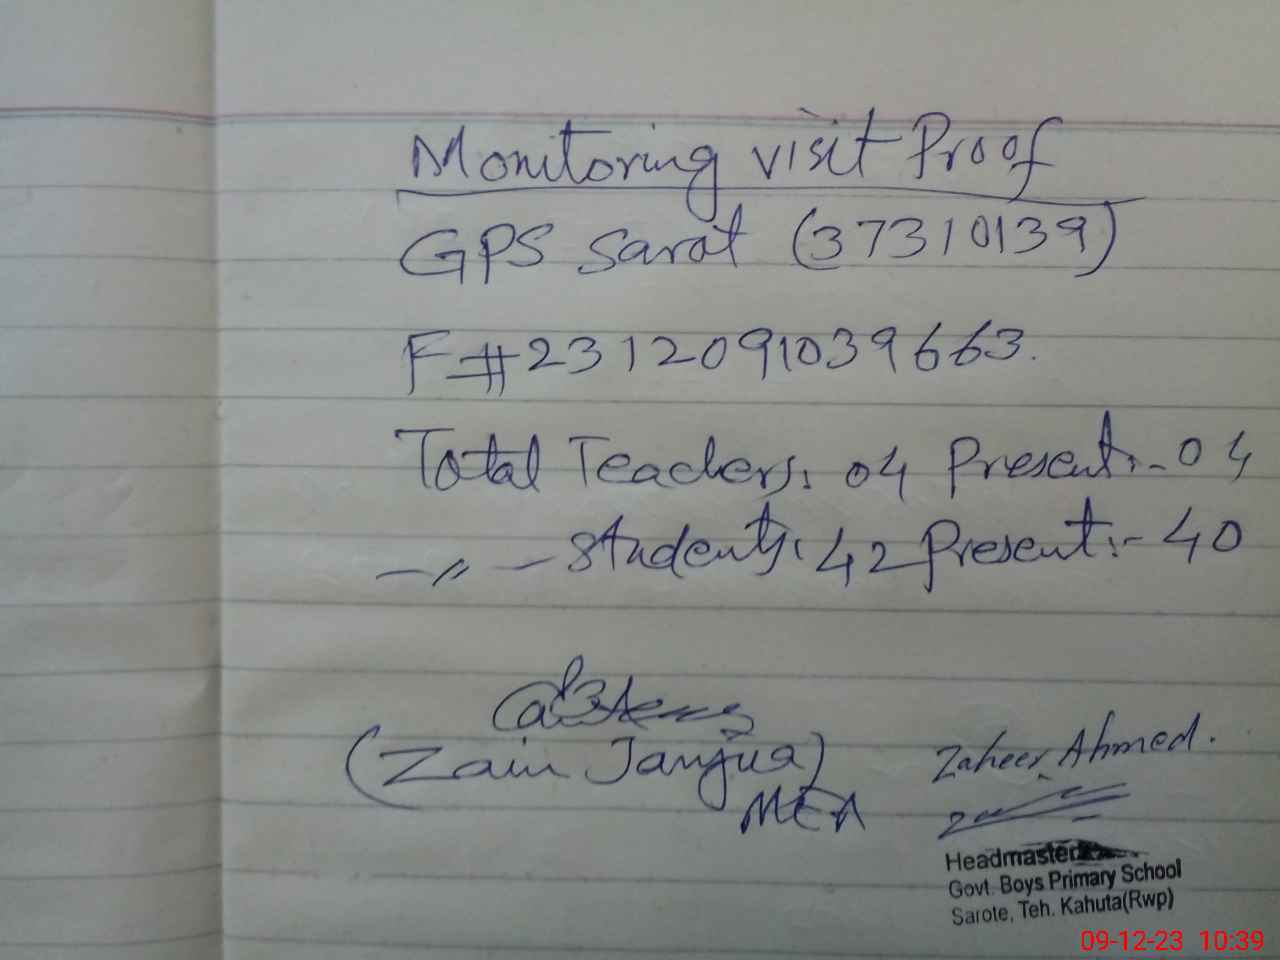 Monitoring visit Proof
GPS Sarot (37310139)
F#2312091039663.
Total Teachers: 04 Present:- 04
—〃— Students: 42 Present:- 40
(Zain Janjua)
MEA
Zaheer Ahmed.
Headmaster
Govt. Boys Primary School
Sarote, Teh. Kahuta(Rwp)
09-12-23 10:39